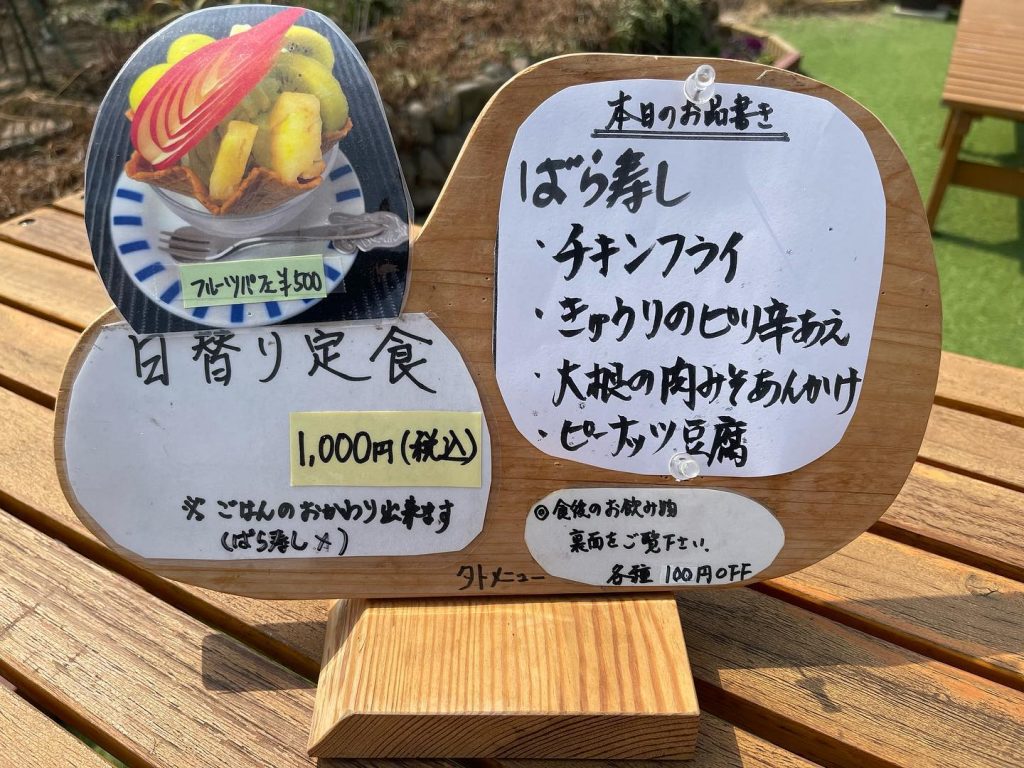 フルーツパフェ¥500
日替り定食
1,000円(税込)
※ごはんのおかわり出来ます
(ばら寿し×)
本日のお品書き
ばら寿し
・チキンフライ
・きゅうりのピリ辛あえ
・大根の肉みそあんかけ
・ピーナッツ豆腐
◎食後のお飲み物
裏面をご覧下さい。
各種 100円OFF
外メニュー